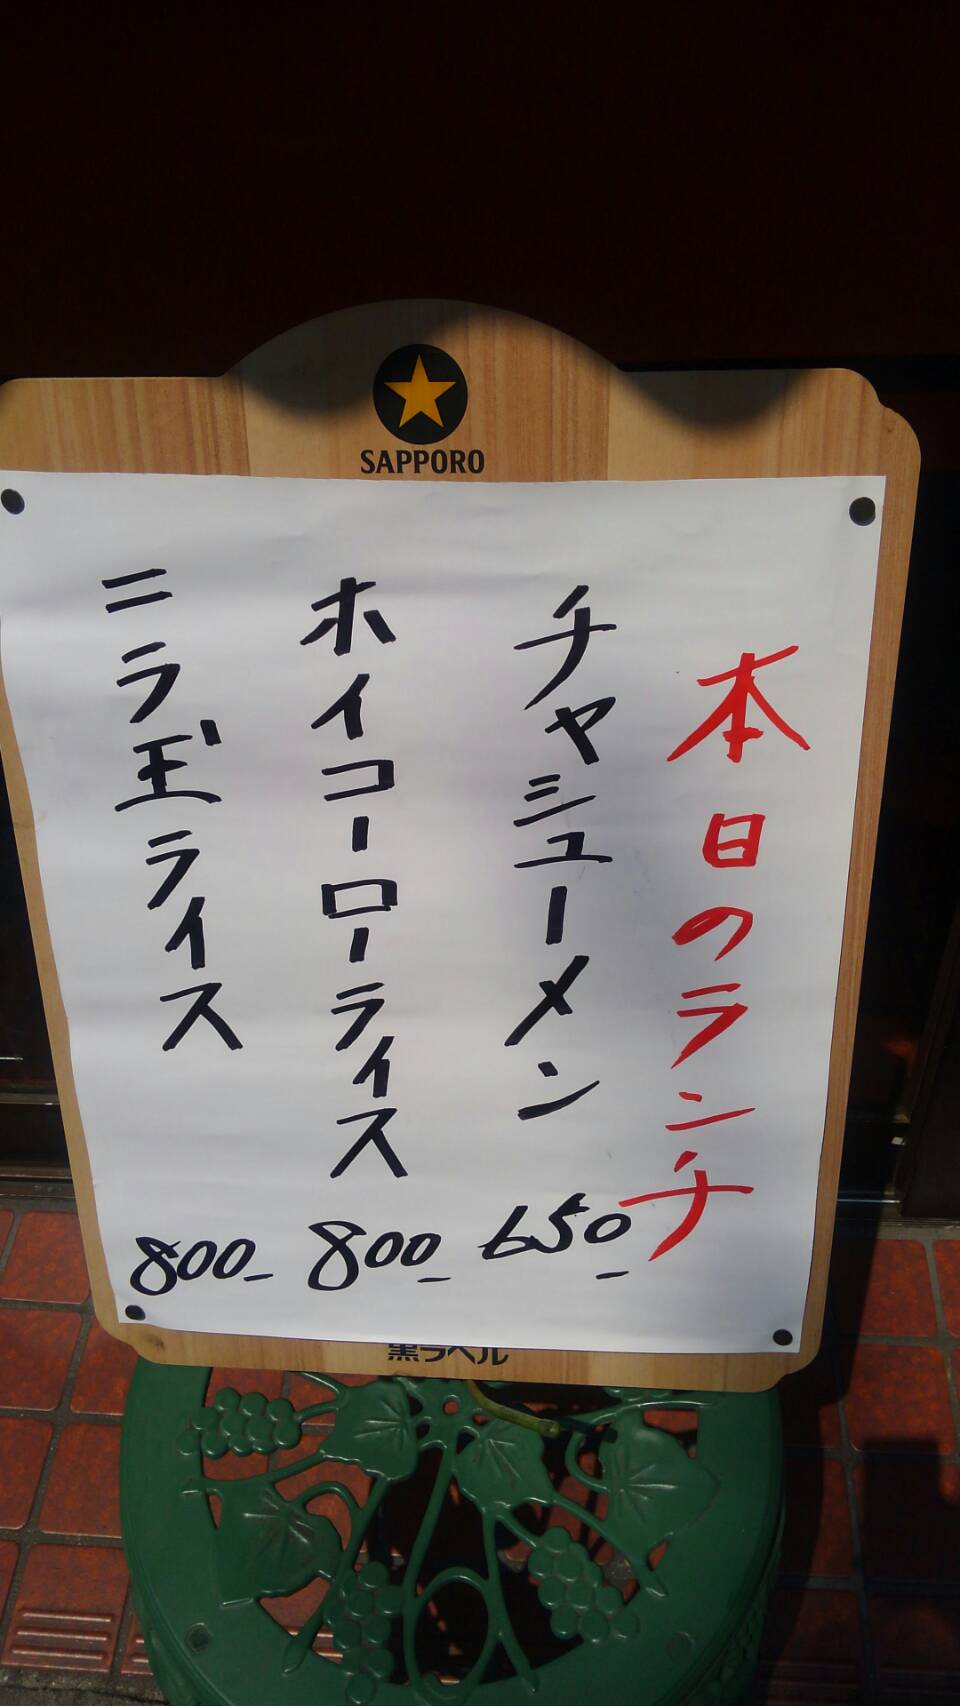 SAPPORO
本日のランチ
チャシューメン 650-
ホイコーローライス 800-
ニラ玉ライス 800-
黒ラベル